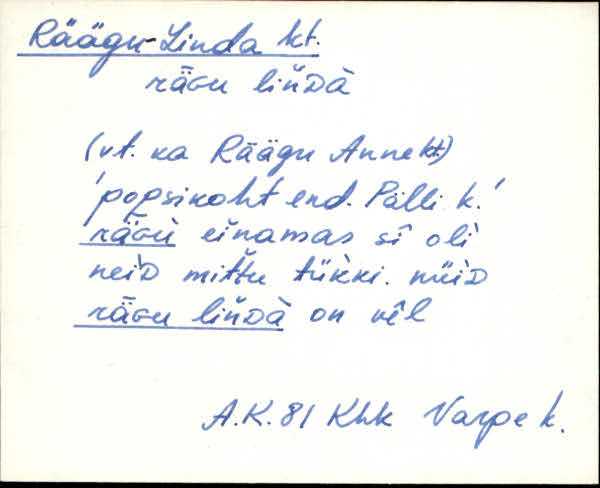 Räägu-Linda kt.
rāGu lin̆Dà
(vt. ka Räägu Anne kt.)
'popsikoht end. Pälli k.'
rāGù eĭnamas sî olì
neìD mit̆tu tük̀ki. nüìD
rāGu lin̆Dà on vêl
A.K. 81 Khk Varpe k.